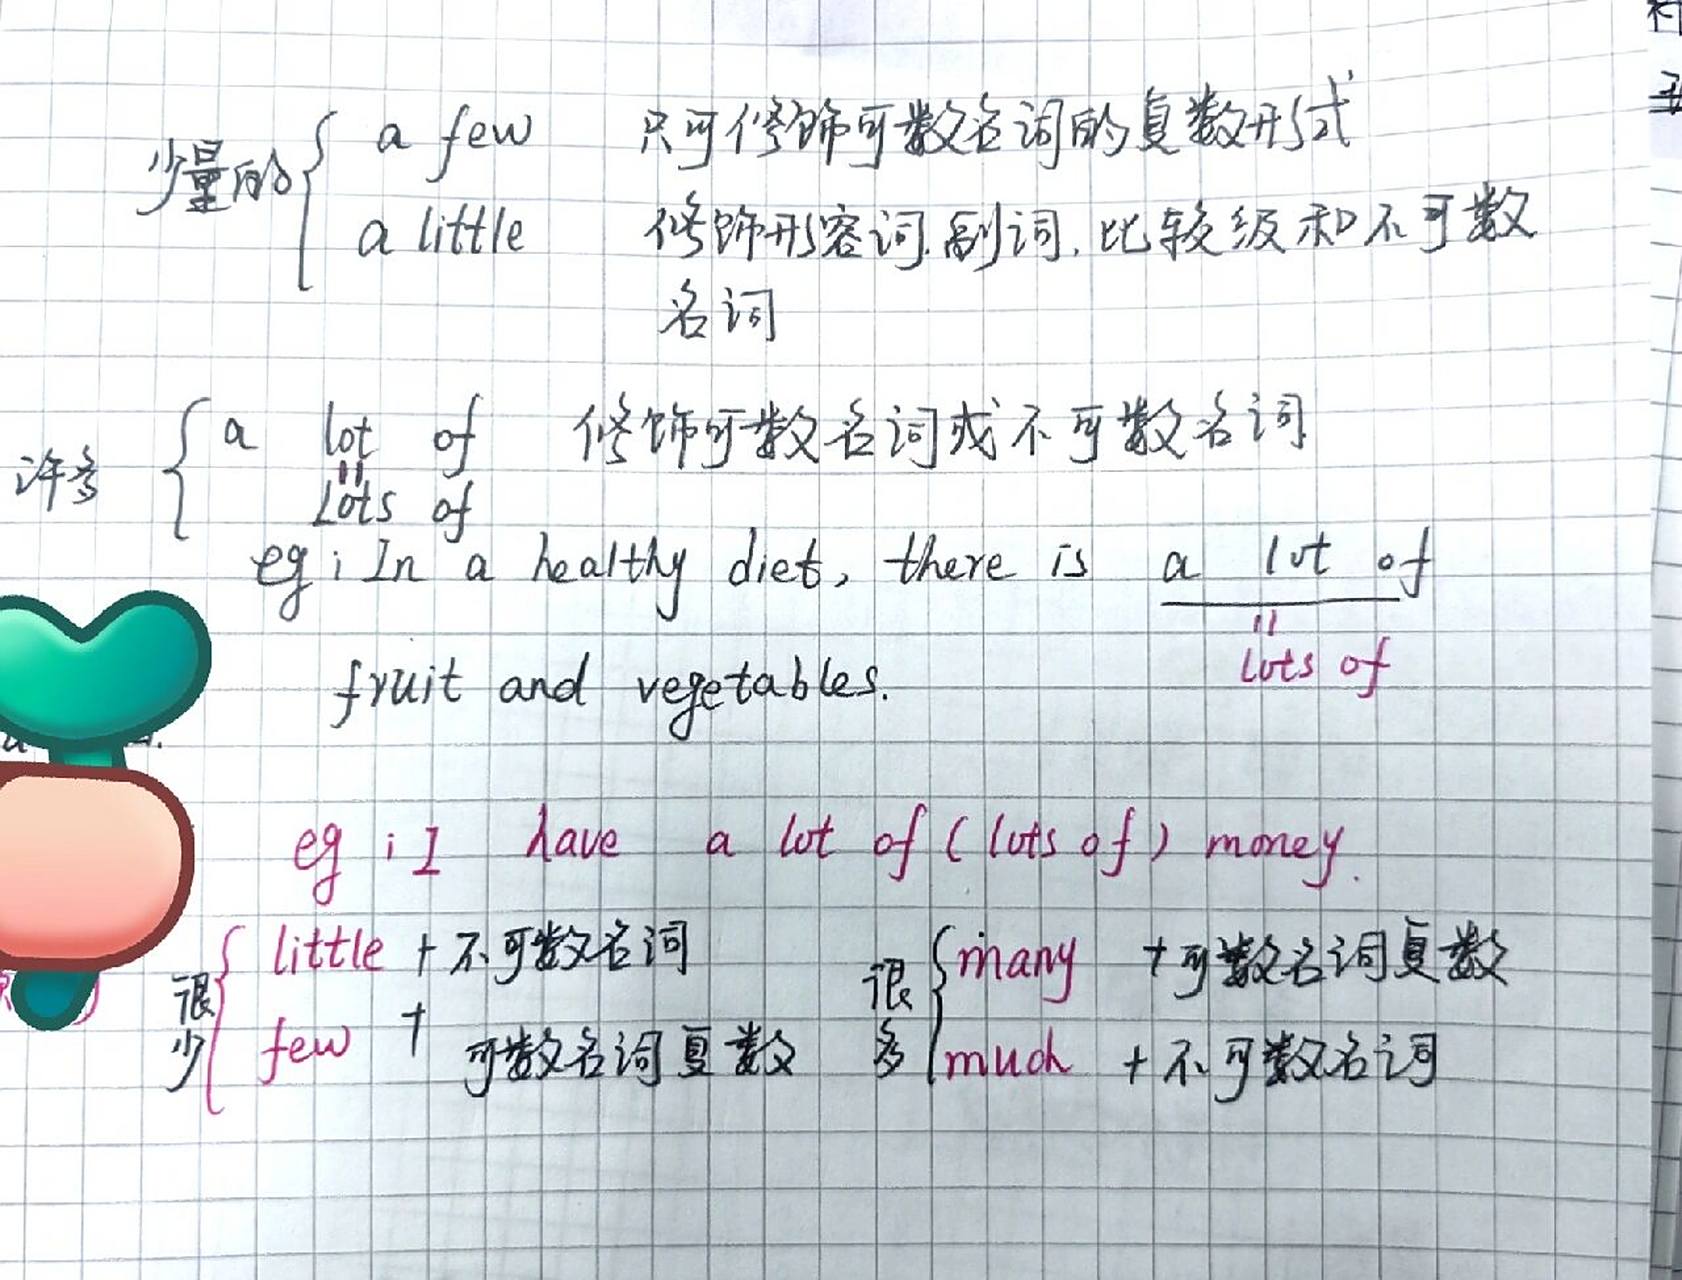 少量的 { a few 只可修饰可数名词的复数形式
a little 修饰形容词.副词.比较级和不可数
名词
许多 { a lot of 修饰可数名词或不可数名词
=
Lots of
eg: In a healthy diet, there is a lot of
=
lots of
fruit and vegetables.
eg: I have a lot of (lots of) money.
很少 { little + 不可数名词
few + 可数名词复数
很多 { many + 可数名词复数
much + 不可数名词